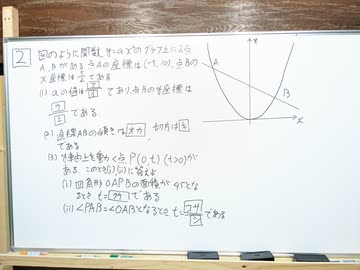 2 図のように関数 y=ax²のグラフ上に2点
A、Bがある 点Aの座標は(-5,10)、点Bの
x座標は 5/2 である
(1) aの値は ア/イ であり、点Bのy座標は
ウ/エ である
(2) 直線ABの傾きは オカ、切片は キ
である
(3) y軸上を動く点 P(0,t) (t>0)が
ある このとき(i)(ii)に答えよ
(i) 四角形OAPBの面積が45とな
るとき、t=クケ である
(ii) ∠PAB=∠OABとなるとき t=コサ/シ である
y
A
B
x